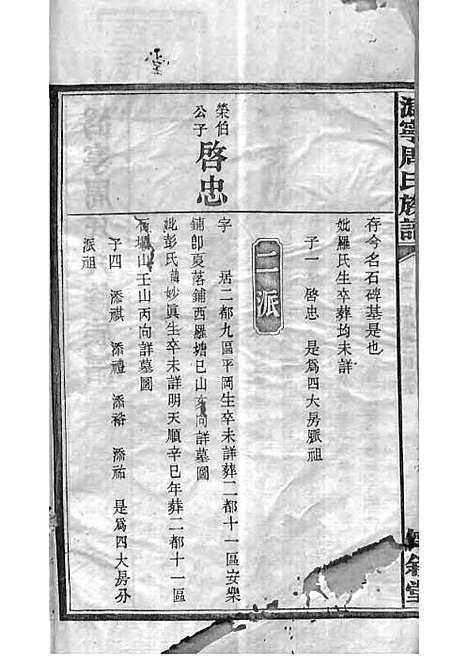 寧周氏族譜
存今名石碑基是也
妣羅氏生卒葬均未詳
子一　啓忠　是爲四大房脈祖
二派
榮伯公子
啓忠
字　居二都九區平岡生卒未詳葬二都十一區安樂
鋪卽東落鋪西羅塘巳山亥向詳墓圖
妣彭氏諱妙眞生卒未詳明天順辛巳年葬二都十一區
塘山壬山丙向詳墓圖
子四　添祺　添禮　添裕　添祐　是爲四大房分
派祖
堂